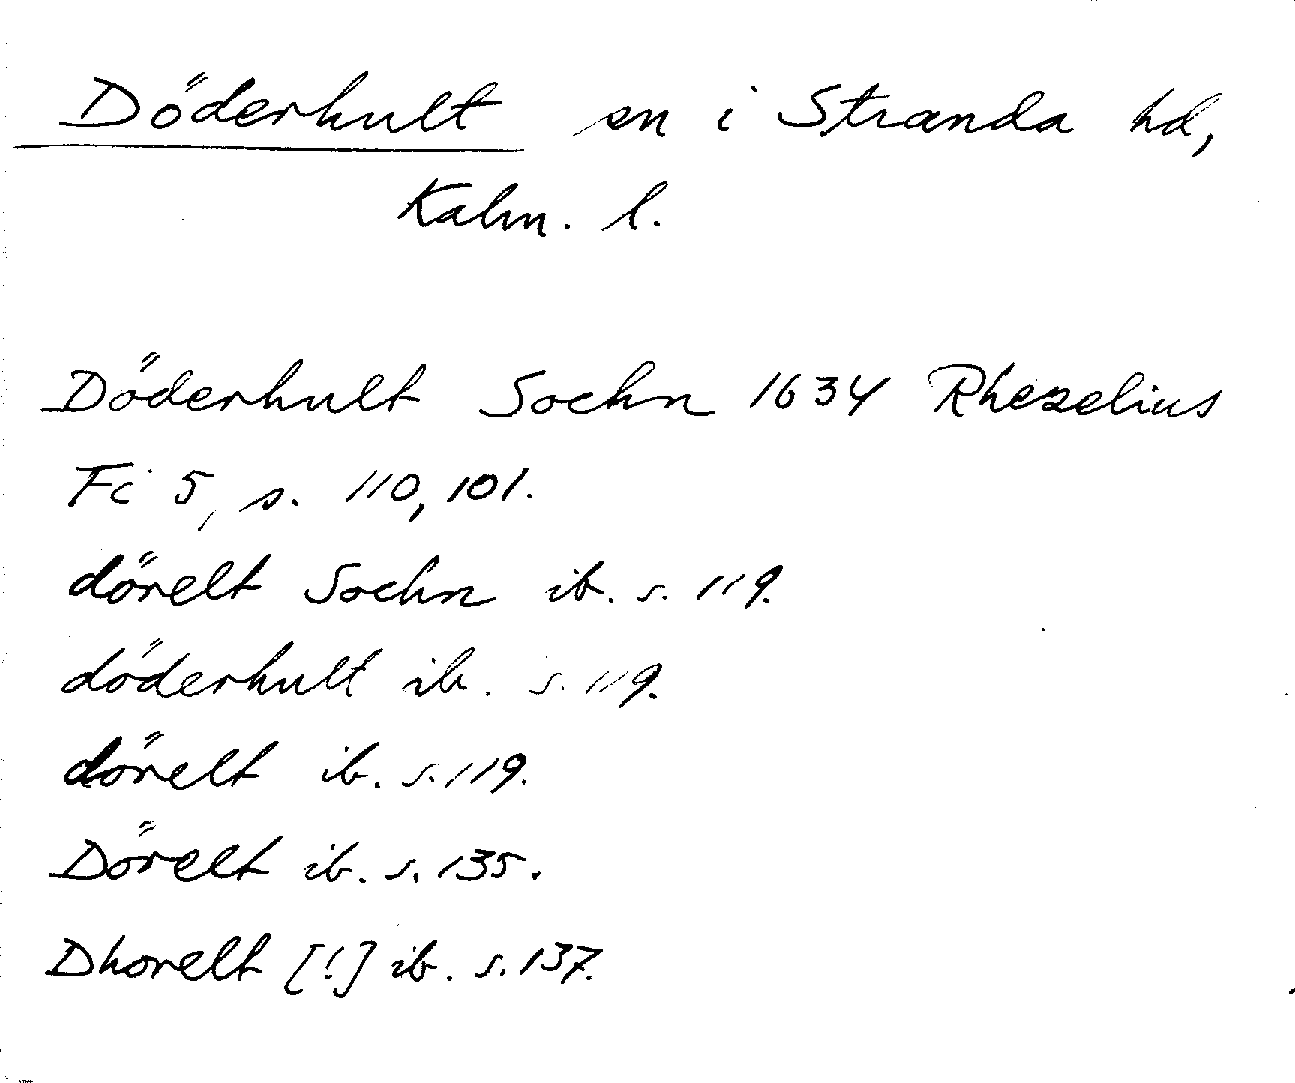 Döderhult sn i Stranda hd,
Kalm. l.
Döderhult Sochn 1634 Rhezelius
Fc 5, s. 110, 101.
dörelt Sochn ib. s. 119.
döderhult ib. s. 119.
dörelt ib. s. 119.
Dörelt ib. s. 135.
Dhorelt [!] ib. s. 137.